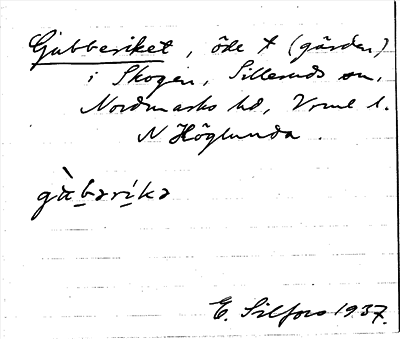 Gubberiket, öde t (gården)
i Skogen, Silleruds sn,
Nordmarks hd, Vrml l.
N Höglunda.
gùbərikə
E. Silfors 1937.